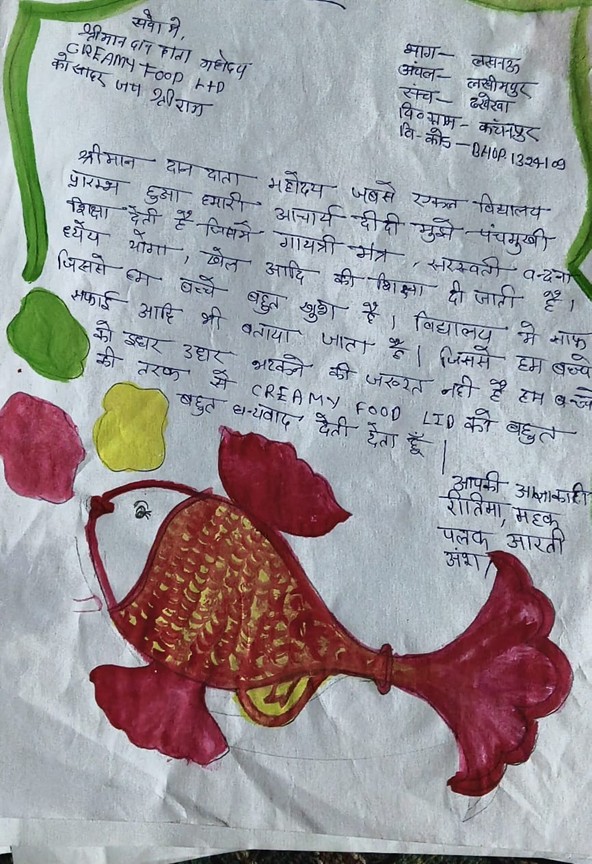 सेवा में,
श्रीमान दान दाता महोदय
CREAMY FOOD LTD
को सादर जय श्री राम
भाग- लखनऊ
अंचल- लखीमपुर
संच- ढखेरवा
वि०ग्राम- कंचनपुर
वि-को०- BHUP1324109
श्रीमान दान दाता महोदय जबसे एकल विद्यालय
प्रारम्भ हुआ हमारी आचार्य दीदी मुझे पंचमुखी
शिक्षा देती है जिसमें गायत्री मंत्र, सरस्वती वन्दना
ध्येय योगा, खेल आदि की शिक्षा दी जाती है।
जिससे हम बच्चे बहुत खुश है। विद्यालय मे साफ
सफाई आदि भी बताया जाता है। जिससे हम बच्चे
को इधर उधर भटकने की जरूरत नही है हम बच्चे
की तरफ से CREAMY FOOD LTD को बहुत
बहुत धन्यवाद देती देता हूँ।
आपकी आज्ञाकारी
रीतिमा, महक
पलक आरती
अंश